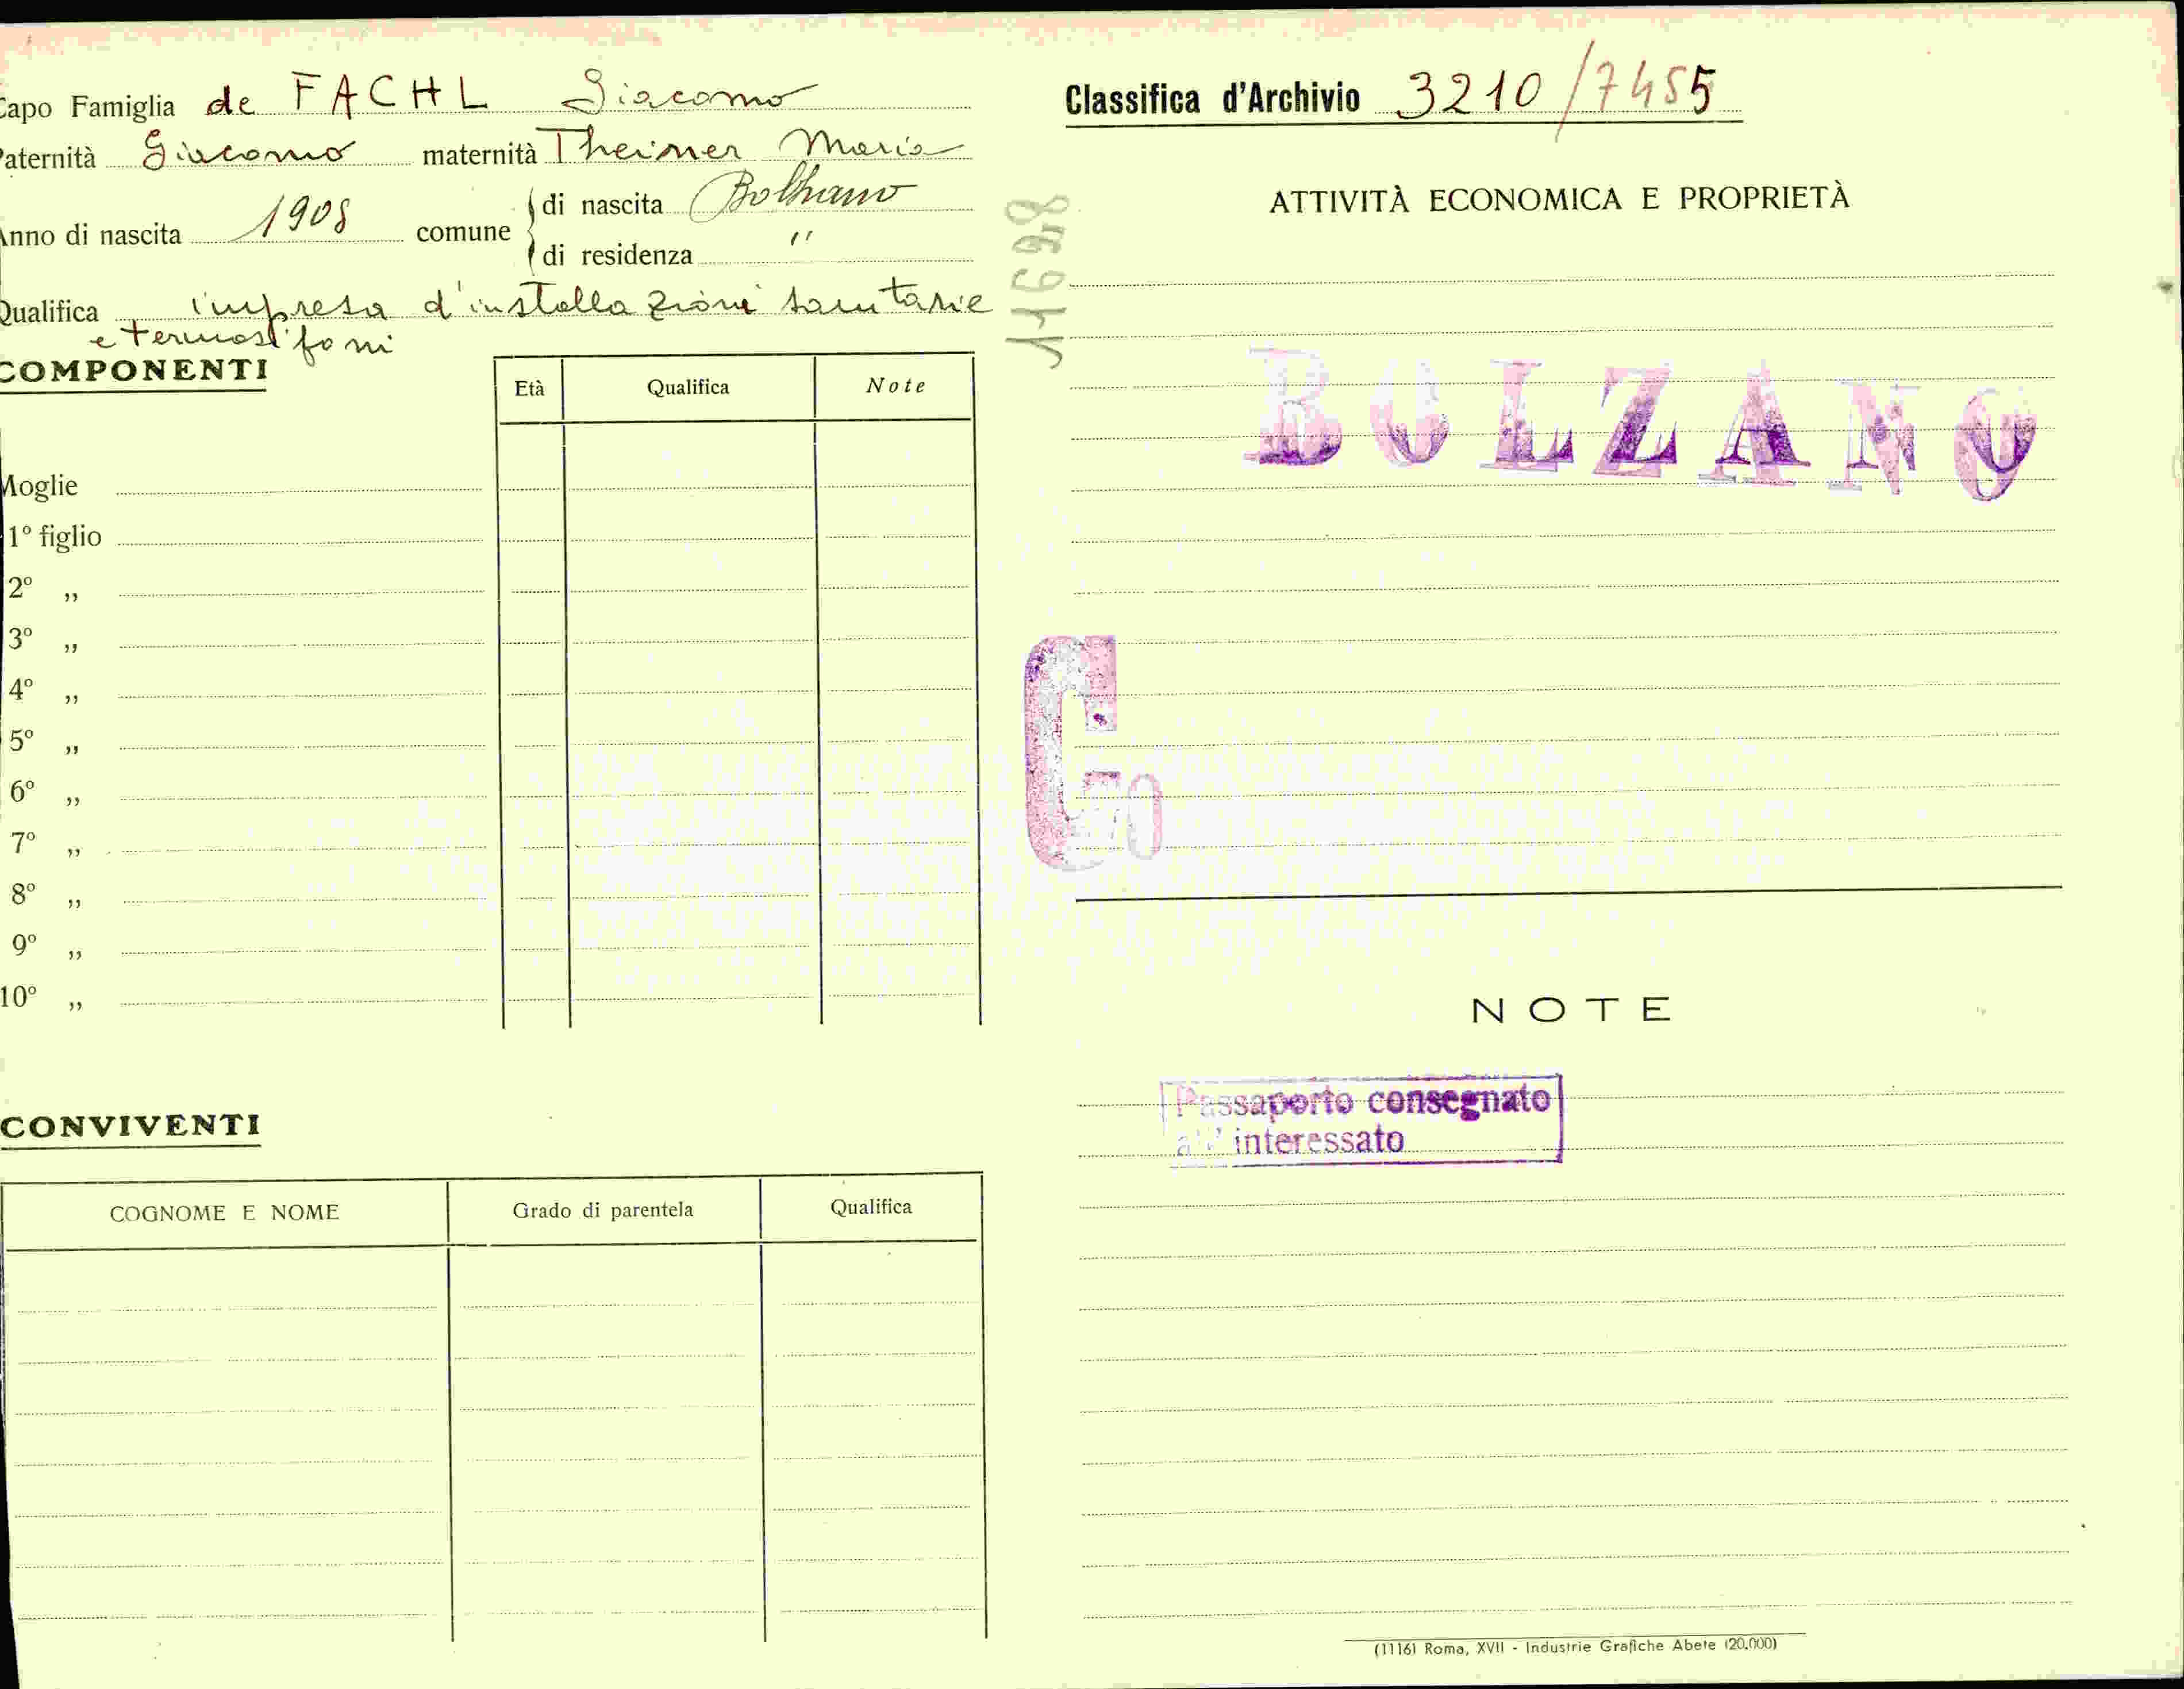 Capo Famiglia de FACHL Giacomo
Paternità Giacomo maternità Theiner Maria
Anno di nascita 1908 comune di nascita Bolzano
di residenza "
Qualifica impresa d'installazioni sanitarie
e termosifoni
COMPONENTI
Età Qualifica Note
Moglie
1º figlio
2º „
3º „
4º „
5º „
6º „
7º „
8º „
9º „
10º „
CONVIVENTI
COGNOME E NOME Grado di parentela Qualifica
116928
Classifica d'Archivio 3210/7455
ATTIVITÀ ECONOMICA E PROPRIETÀ
BOLZANO
G
NOTE
Passaporto consegnato
all' interessato
(1116) Roma, XVII - Industrie Grafiche Abete (20.000)